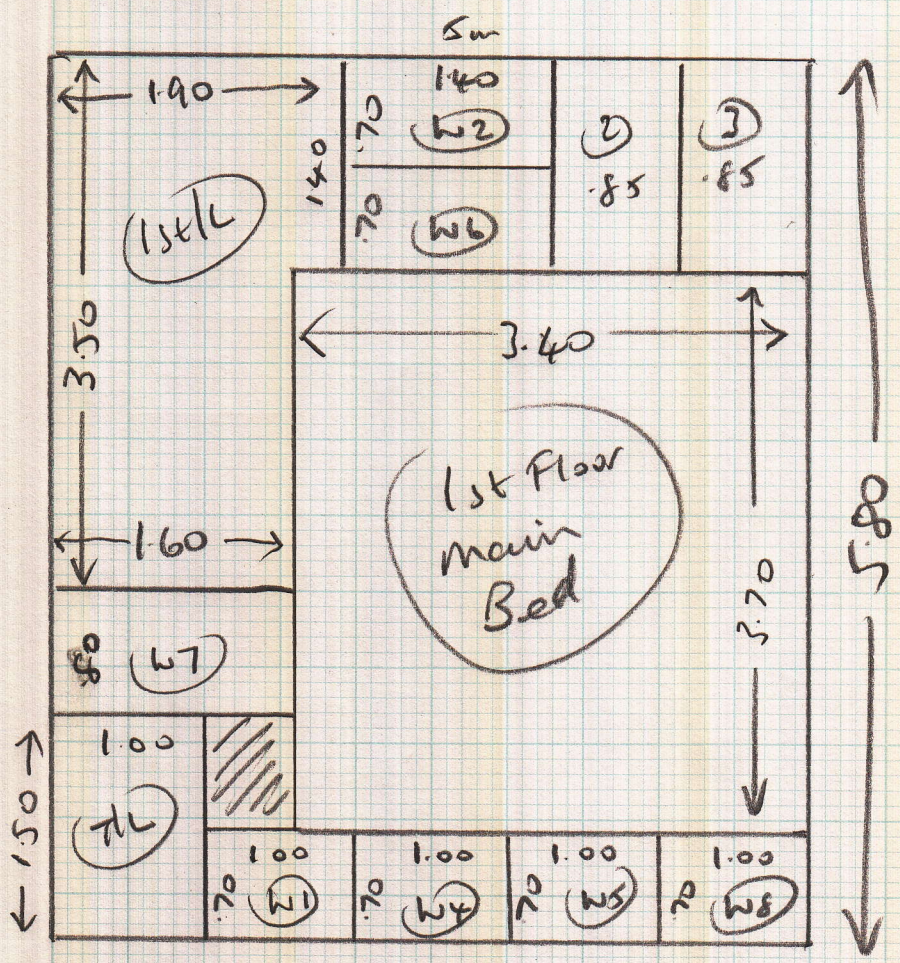 5m
1.90
1.40
.70
W2
2
.85
3
.85
1.40
.70
W6
1st/L
3.50
3.40
1st Floor
main
Bed
5.80
3.70
1.60
.80
W7
1.00
T/L
1.50
1.00
.70
W1
1.00
.70
W4
1.00
.70
W5
1.00
.70
W8